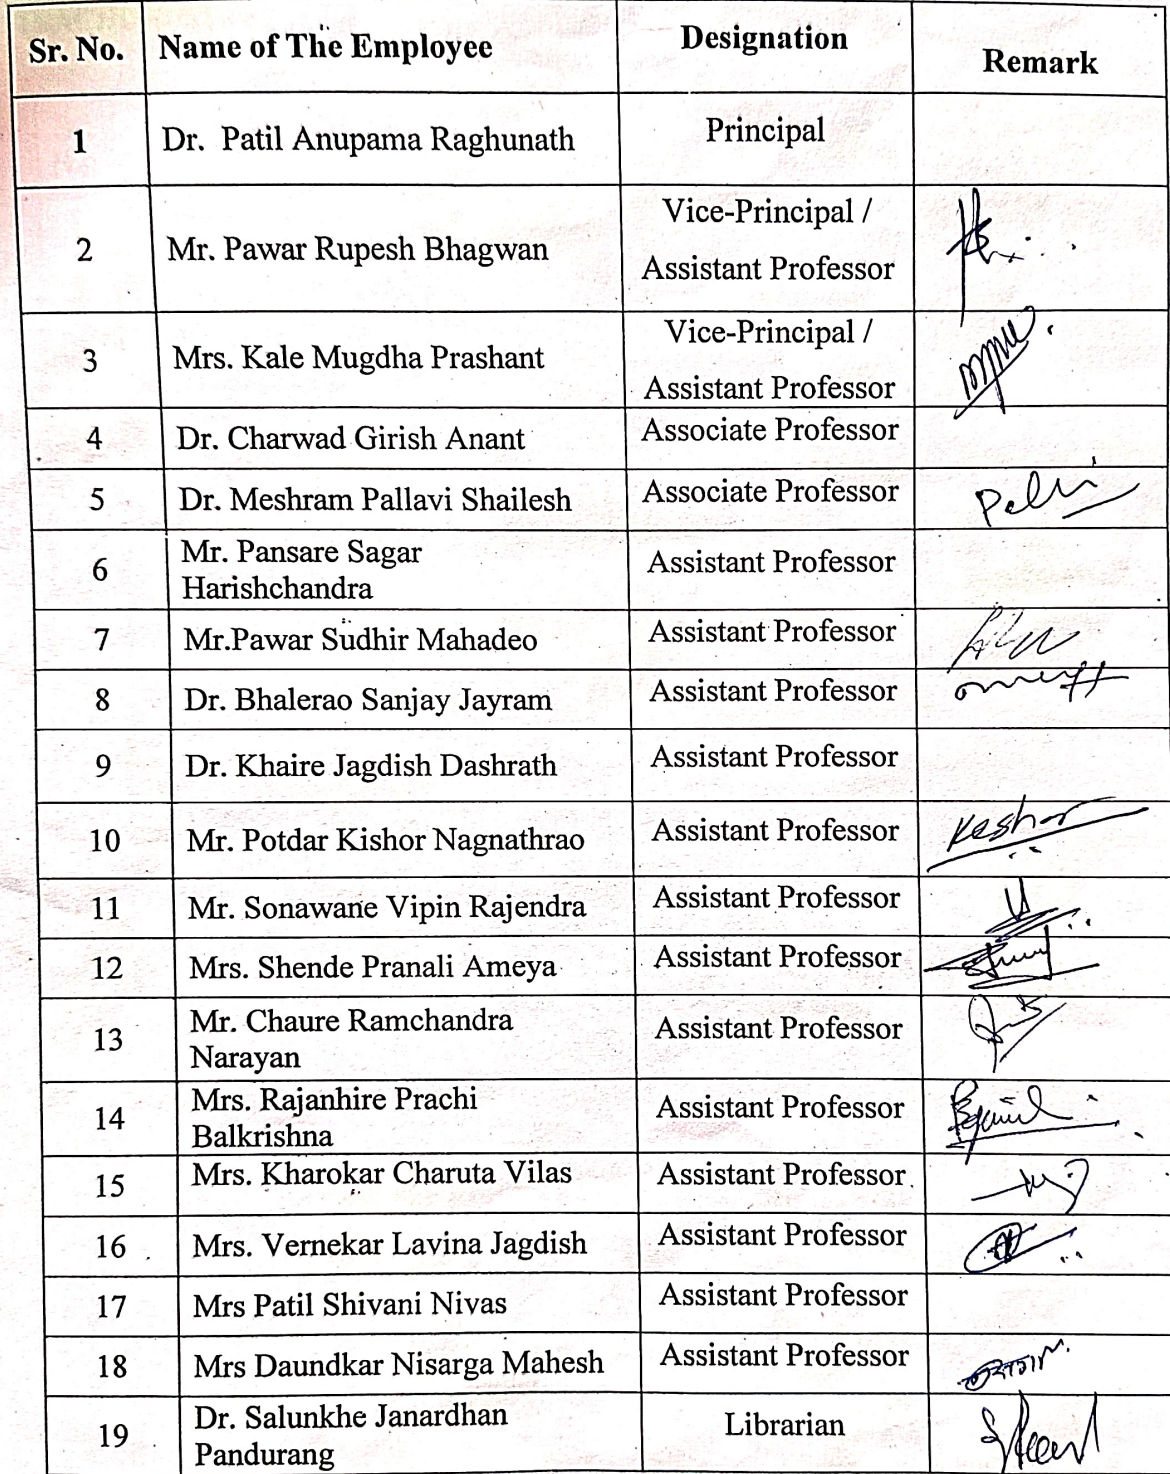 Sr. No. Name of The Employee Designation Remark
1 Dr. Patil Anupama Raghunath Principal
2 Mr. Pawar Rupesh Bhagwan Vice-Principal /
Assistant Professor
3 Mrs. Kale Mugdha Prashant Vice-Principal /
Assistant Professor
4 Dr. Charwad Girish Anant Associate Professor
5 Dr. Meshram Pallavi Shailesh Associate Professor
6 Mr. Pansare Sagar
Harishchandra Assistant Professor
7 Mr.Pawar Sudhir Mahadeo Assistant Professor
8 Dr. Bhalerao Sanjay Jayram Assistant Professor
9 Dr. Khaire Jagdish Dashrath Assistant Professor
10 Mr. Potdar Kishor Nagnathrao Assistant Professor
11 Mr. Sonawane Vipin Rajendra Assistant Professor
12 Mrs. Shende Pranali Ameya Assistant Professor
13 Mr. Chaure Ramchandra
Narayan Assistant Professor
14 Mrs. Rajanhire Prachi
Balkrishna Assistant Professor
15 Mrs. Kharokar Charuta Vilas Assistant Professor
16 Mrs. Vernekar Lavina Jagdish Assistant Professor
17 Mrs Patil Shivani Nivas Assistant Professor
18 Mrs Daundkar Nisarga Mahesh Assistant Professor
19 Dr. Salunkhe Janardhan
Pandurang Librarian